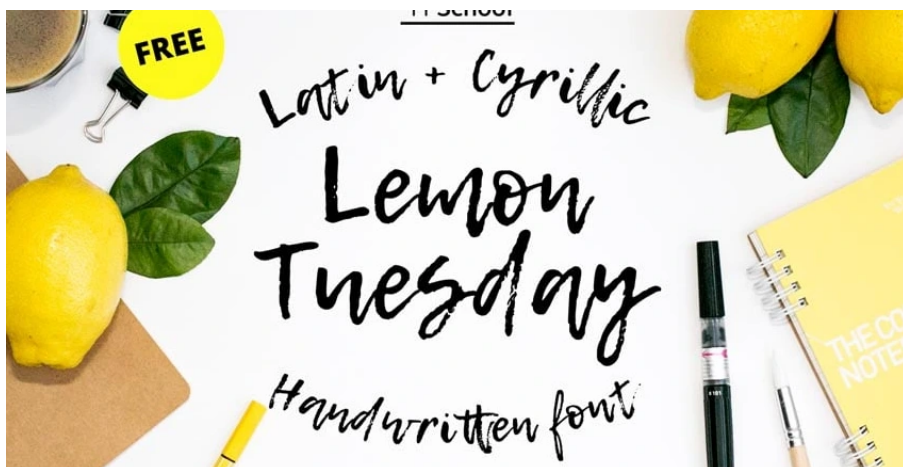 School
FREE
Latin + Cyrillic
Lemon
Tuesday
Handwritten font
THE CO
NOTE